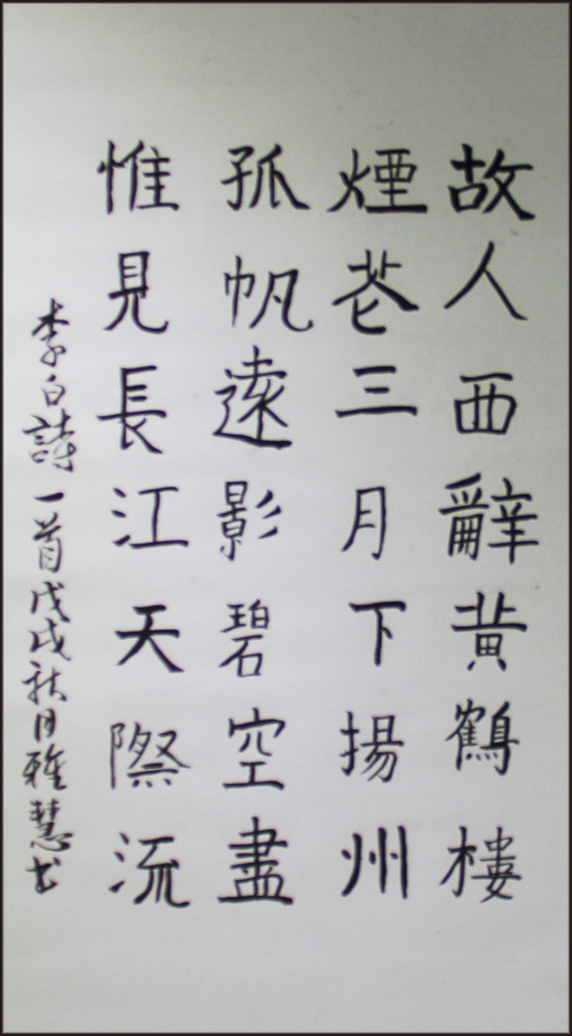 故人西辭黃鶴樓
煙花三月下揚州
孤帆遠影碧空盡
惟見長江天際流
李白詩一首戊戌秋月雅慧书